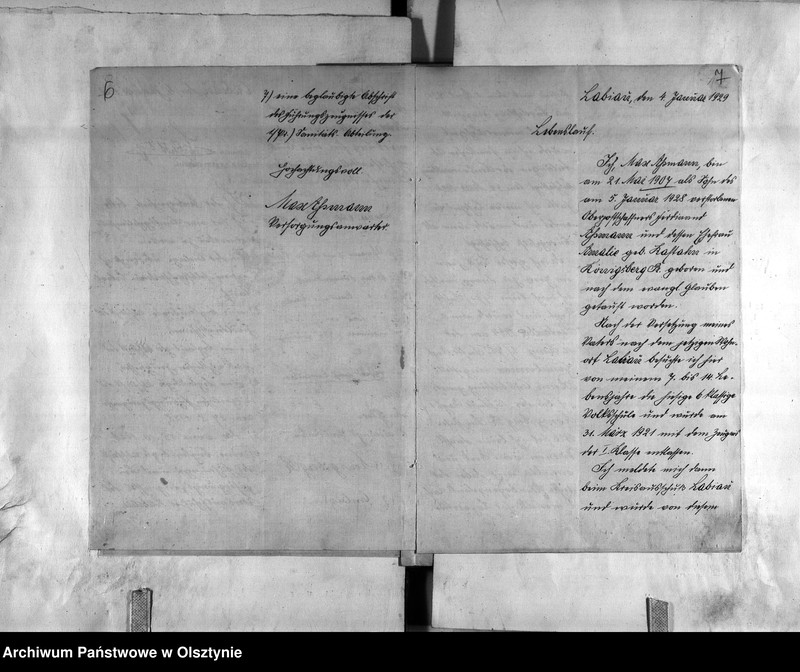 6
7) eine beglaubigte Abschrift
des Führungszeugnisses der
1/(Pr.) Sanitäts-Abteilung.
Hochachtungsvoll
Max
Versorgungsanwärter.
7
Labiau, den 4. Januar 1929
Lebenslauf.
Ich, Max bin
am 21. Mai 1907 als Sohn des
am 5. Januar 1928 verstorbenen
Oberpostschaffners Ferdinand
und dessen Ehefrau
Amalie geb. in
Königsberg Pr. geboren und
nach dem evangl. Glauben
getauft worden.
Nach der Versetzung meines
Vaters nach dem jetzigen Wohn-
ort Labiau besuchte ich hier
von meinem 7. bis 14. Le-
bensjahre die hiesige 6 klassige
Volksschule und wurde am
31. März 1921 mit dem Zeugnis
der I. Klasse entlassen.
Ich meldete mich dann
beim Kreisausschuß Labiau
und wurde von diesem
Archiwum Państwowe w Olsztynie